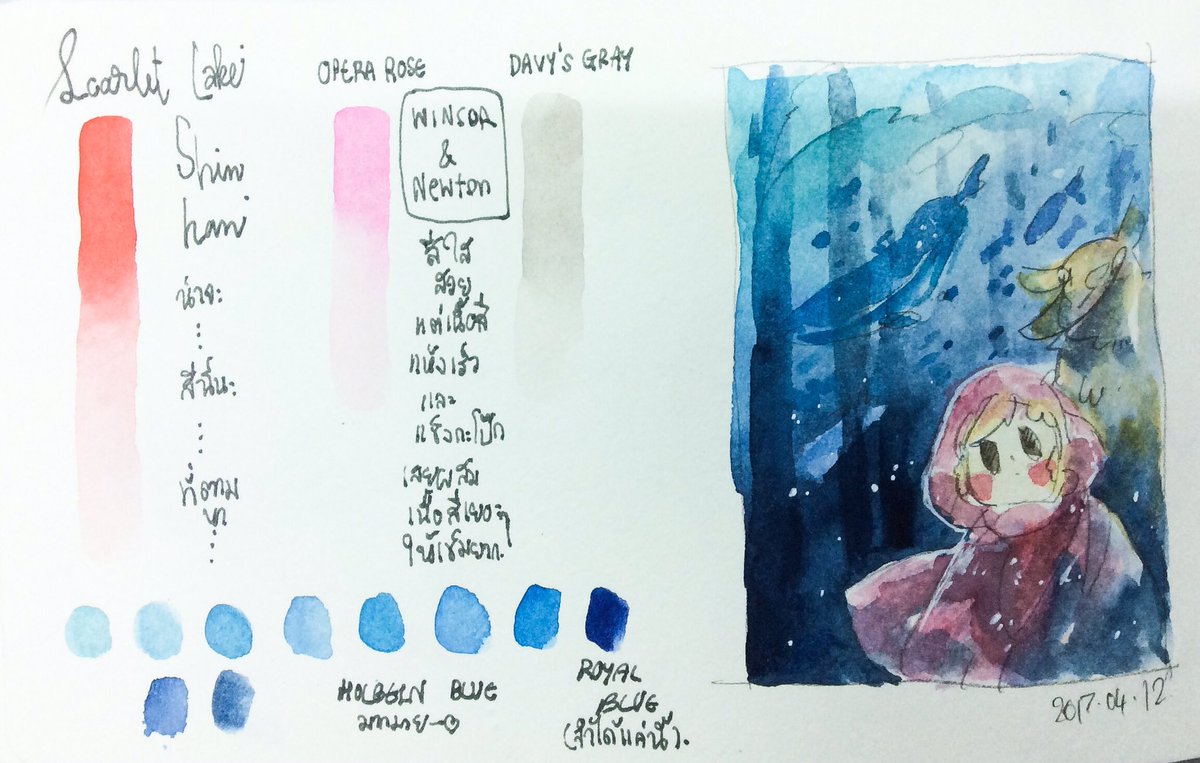 Scarlet Lake
Shin
han
น่าจะ
...
สีนี้นะ
...
ที่ตาม
...
OPERA ROSE
WINSOR
&
Newton
DAVY'S GRAY
สีใส
สวย
แต่เนื้อสี
แห้งเร็ว
และ
แข็งกะโป๊ก
เลยผสม
เนื้อสีเยอะๆ
ให้เข้มยาก.
HOLBEIN BLUE
มากมาย
ROYAL
BLUE
(จำได้แค่นี้).
2017.04.12